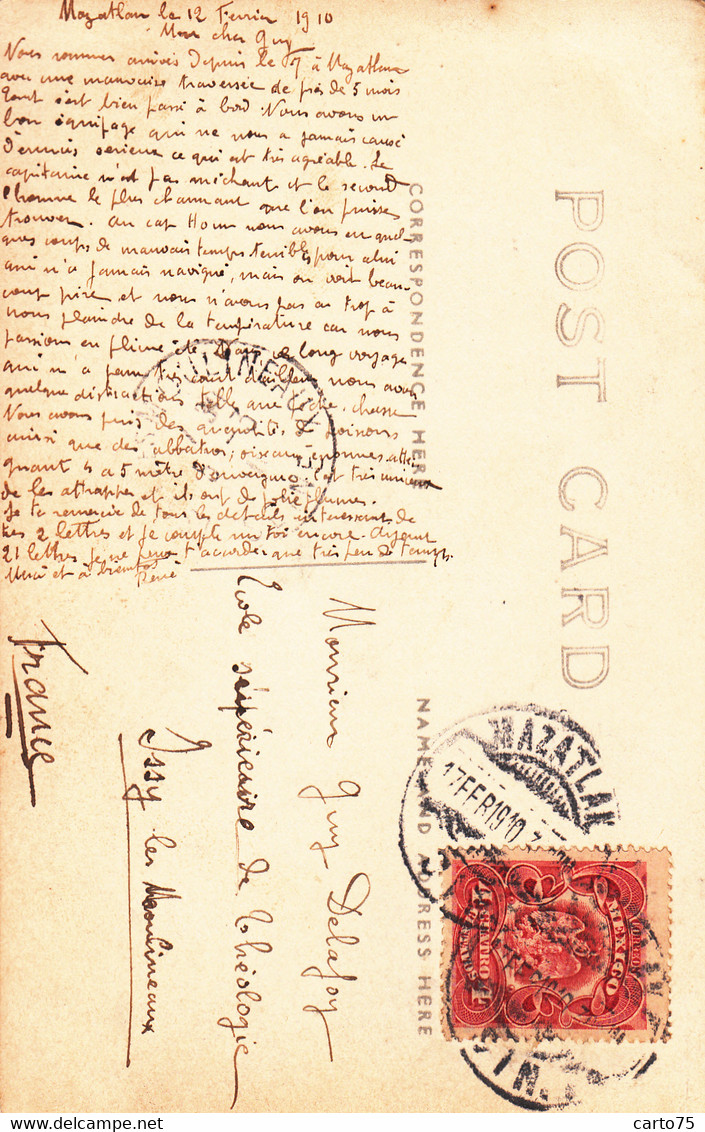 Mazatlan le 12 Fevrier 1910
Mon cher Guy
Nous sommes arrivés depuis le 7 à Mazatlan
avec une mauvaise traversée de près de 5 mois
Tout s'est bien passé à bord. Nous avons un
bon équipage qui ne nous a jamais causé
d'ennuis serieux ce qui est très agréable. Le
capitaine n'est pas méchant et le second
l'homme le plus charmant que l'on puisse
trouver. Au cap Horn nous avons eu quel-
ques coups de mauvais temps terribles pour celui
qui n'a jamais navigué, mais on voit beau-
coup pire et nous n'avons pas eu trop à
nous plaindre de la température car nous
passions en pleine été. Dans ce long voyage
qui m'a paru très court d'ailleurs nous avons
quelque distractions telle que pêche, chasse
Nous avons pris des quantités de poissons
ainsi que des albatros, oiseaux énormes attei-
gnant 4 à 5 mètre d'envergure. C'est très curieux
de les attrapper et ils ont de jolie plumes.
Je te remercie de tous les détails interessants de
tes 2 lettres et je compte sur toi encore. Ayant
21 lettres je ne peux t'accorder que très peu de temps.
Merci et à bientôt
René
CORRESPONDENCE HERE
POST CARD
NAME AND ADDRESS HERE
Monsieur Guy Delafoy
Ecole supérieure de Théologie
Issy les Moulineaux
France
MAZATLAN
17 FEB 1910
SIN.
CORREOS
MEXICO
CENTAVOS
delcampe.net
carto75